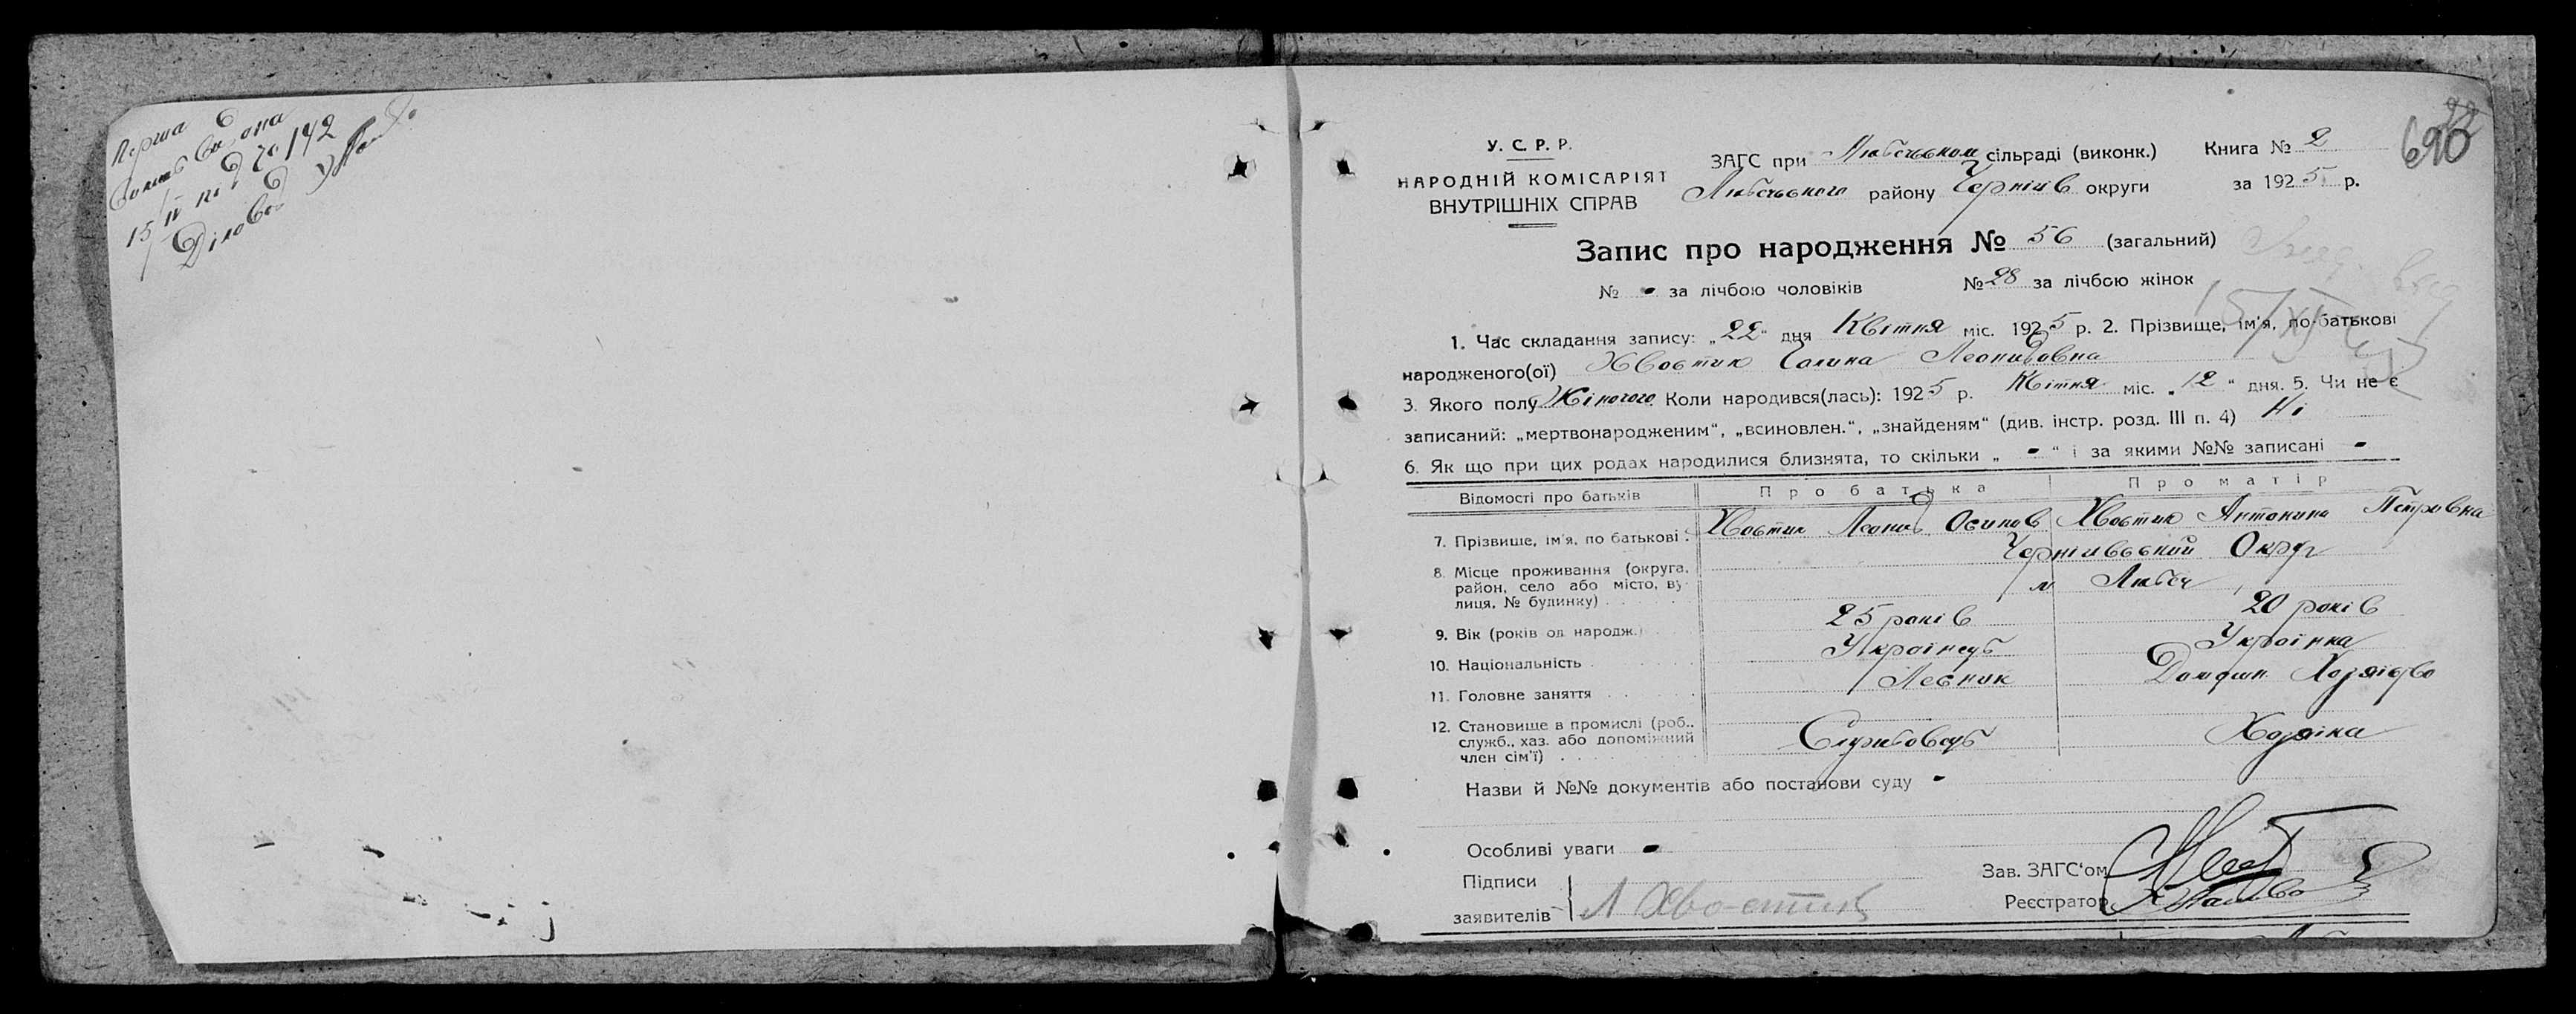 Перша
15/IV по № 142
Діловод
22
690
У. С. Р. Р.
НАРОДНІЙ КОМІСАРІЯТ
ВНУТРІШНІХ СПРАВ
ЗАГС при Любечьком сільраді (виконк.) Книга № 2
Любечьекого району Чернігів округи за 1925 р.
Запис про народження № 56 (загальний)
№ - за лічбою чоловіків № 28 за лічбою жінок
15/XI
1. Час складання запису: „22“ дня Квітня міс. 1925 р. 2. Прізвище, ім'я, по-батькові
народженого(ої) Хвостик Галина Леонидовна
3. Якого полу Жіночого Коли народився(лась): 1925 р. Квітня міс. „12“ дня. 5. Чи не є
записаний: „мертвонародженим“, „всиновлен.“, „знайденям“ (див. інстр. розд. III п. 4) Ні
6. Як що при цих родах народилися близнята, то скільки „ - “ і за якими №№ записані -
Відомості про батьків Про батька Про матір
7. Прізвище, ім'я, по батькові. Хвостик Леонид Осипов Хвостик Антонина Петровна
8. Місце проживання (округа, район, село або місто, вулиця, № будинку) Чернігивський Округ
м Любеч
9. Вік (років од народж.) 25 років 20 років
10. Національність Українець Українка
11. Головне заняття Лесник Домашн. Хозяйство
12. Становище в промислі (роб., служб., хаз. або допоміжний член сім'ї) Службовець Хозяіка
Назви й №№ документів або постанови суду -
Особливі уваги -
Підписи
заявителів Л Хвостик
Зав. ЗАГС'ом
Реєстратор